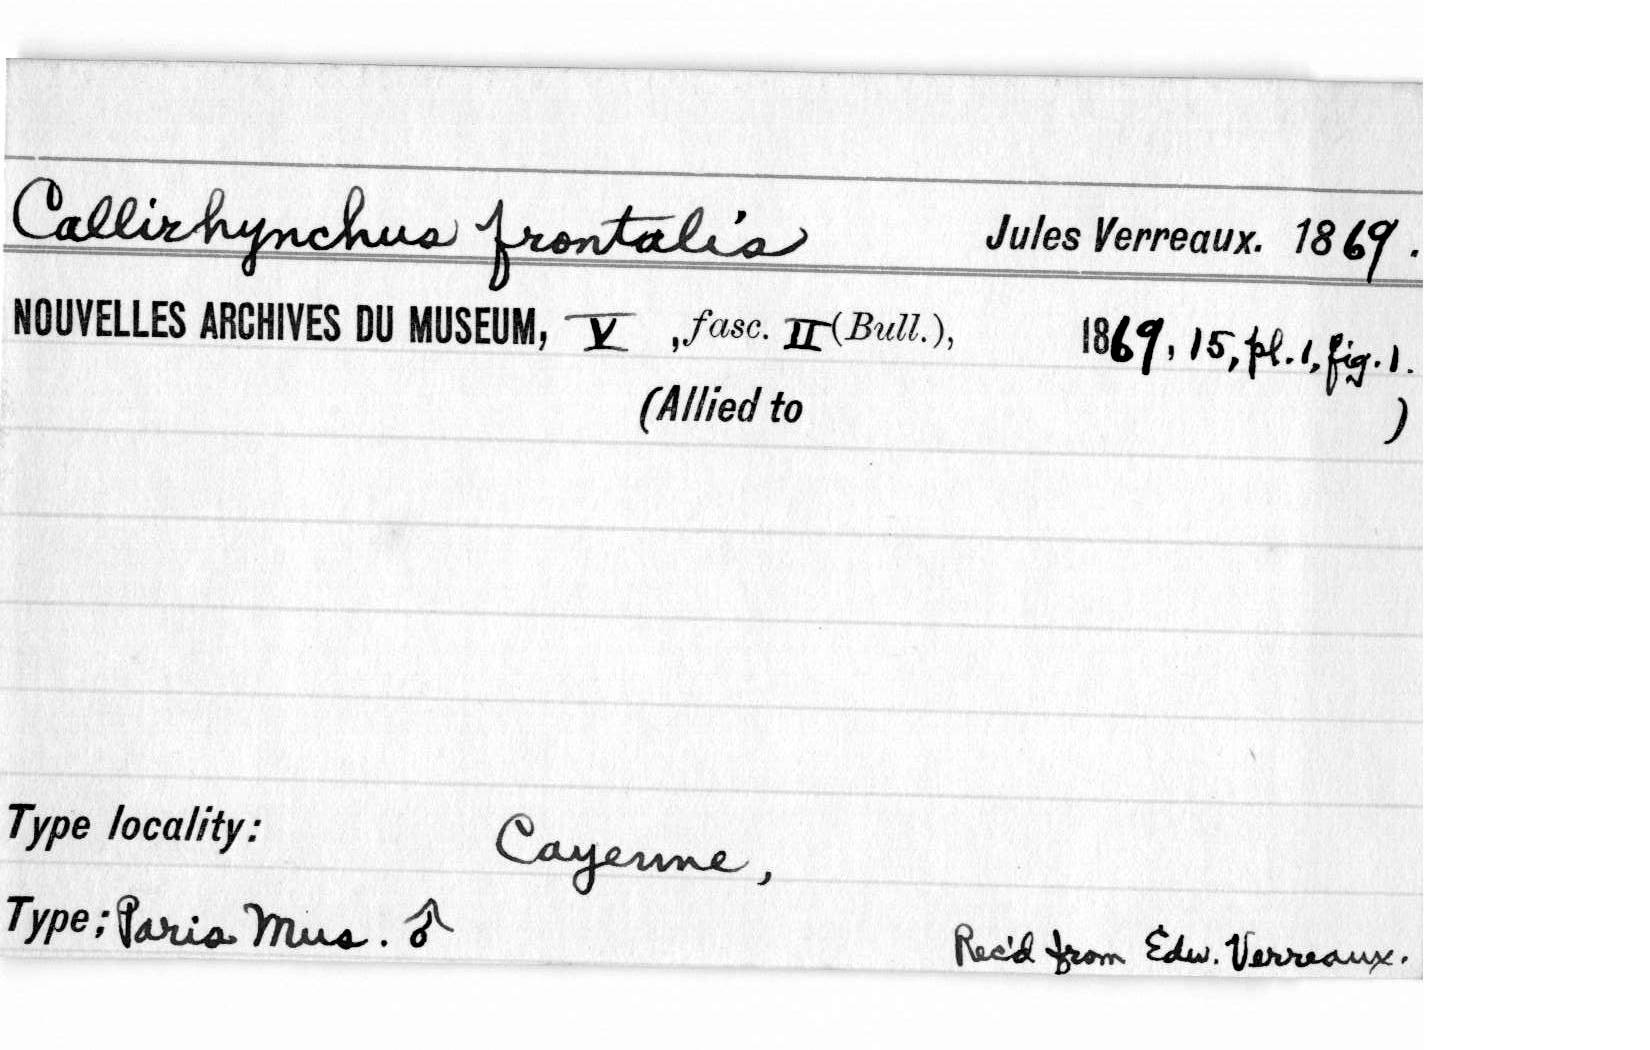 Callirhynchus frontalis Jules Verreaux. 1869.
NOUVELLES ARCHIVES DU MUSEUM, V , fasc. II (Bull.), 1869, 15, pl. 1, fig. 1.
(Allied to )
Type locality: Cayenne,
Type; Paris Mus. ♂ Rec'd from Edw. Verreaux.